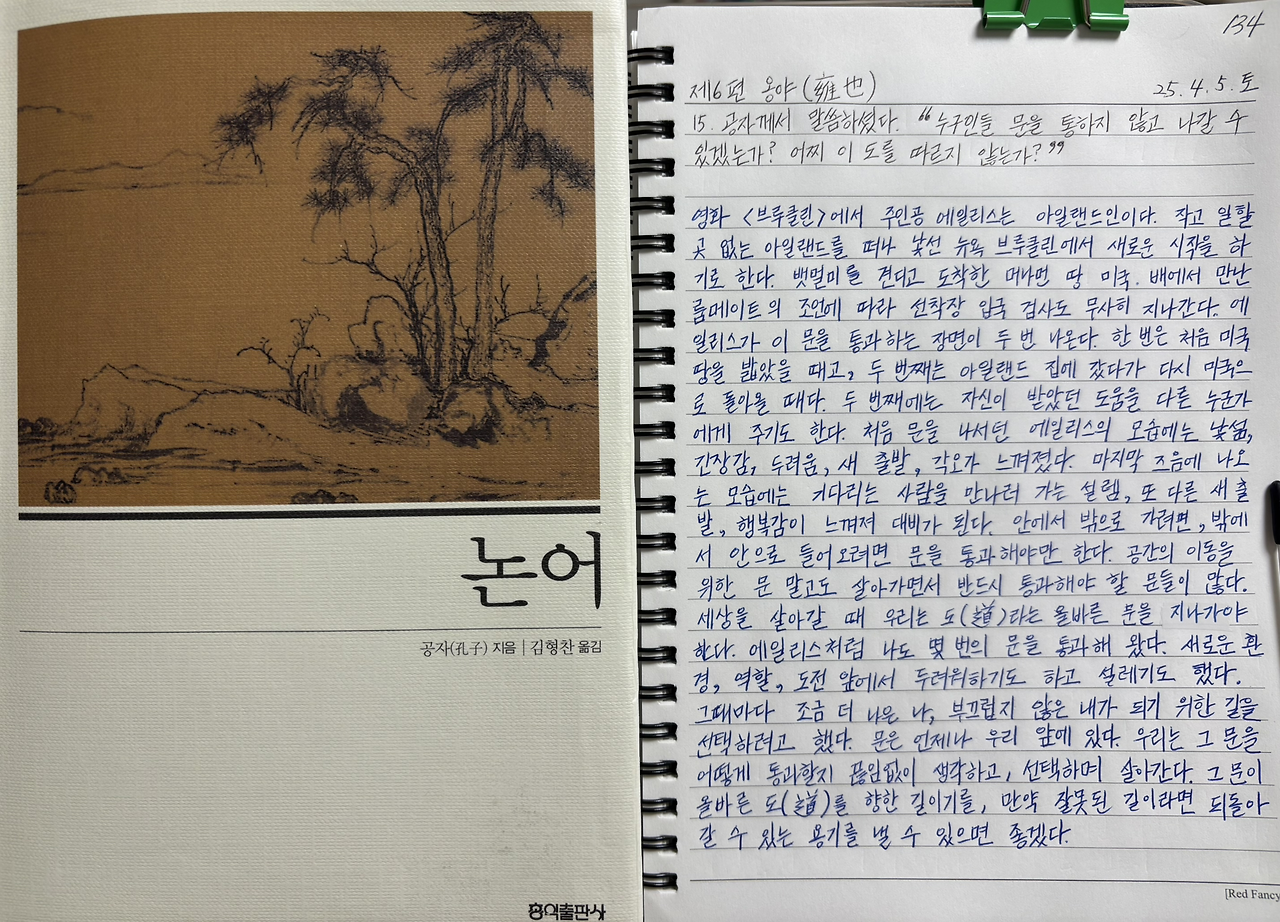 논어
공자(孔子) 지음 | 김형찬 옮김
홍익출판사
134
제6편 옹야(雍也) 25.4.5.토
15. 공자께서 말씀하셨다. "누구인들 문을 통하지 않고 나갈 수
있겠는가? 어찌 이 도를 따르지 않는가?"
영화 <브루클린>에서 주인공 에일리스는 아일랜드인이다. 작고 일할
곳 없는 아일랜드를 떠나 낯선 뉴욕 브루클린에서 새로운 시작을 하
기로 한다. 뱃멀미를 견디고 도착한 머나먼 땅 미국. 배에서 만난
룸메이트의 조언에 따라 선착장 입국 검사도 무사히 지나간다. 에
일리스가 이 문을 통과하는 장면이 두 번 나온다. 한 번은 처음 미국
땅을 밟았을 때고, 두 번째는 아일랜드 집에 갔다가 다시 미국으
로 돌아올 때다. 두 번째에는 자신이 받았던 도움을 다른 누군가
에게 주기도 한다. 처음 문을 나서던 에일리스의 모습에는 낯섦,
긴장감, 두려움, 새 출발, 각오가 느껴졌다. 마지막 즈음에 나오
는 모습에는 기다리는 사람을 만나러 가는 설렘, 또 다른 새 출
발, 행복감이 느껴져 대비가 된다. 안에서 밖으로 가려면, 밖에
서 안으로 들어오려면 문을 통과해야만 한다. 공간의 이동을
위한 문 말고도 살아가면서 반드시 통과해야 할 문들이 많다.
세상을 살아갈 때 우리는 도(道)라는 올바른 문을 지나가야
한다. 에일리스처럼 나도 몇 번의 문을 통과해 왔다. 새로운 환
경, 역할, 도전 앞에서 두려워하기도 하고 설레기도 했다.
그때마다 조금 더 나은 나, 부끄럽지 않은 내가 되기 위한 길을
선택하려고 했다. 문은 언제나 우리 앞에 있다. 우리는 그 문을
어떻게 통과할지 끊임없이 생각하고, 선택하며 살아간다. 그 문이
올바른 도(道)를 향한 길이기를, 만약 잘못된 길이라면 되돌아
갈 수 있는 용기를 낼 수 있으면 좋겠다.
[Red Fancy